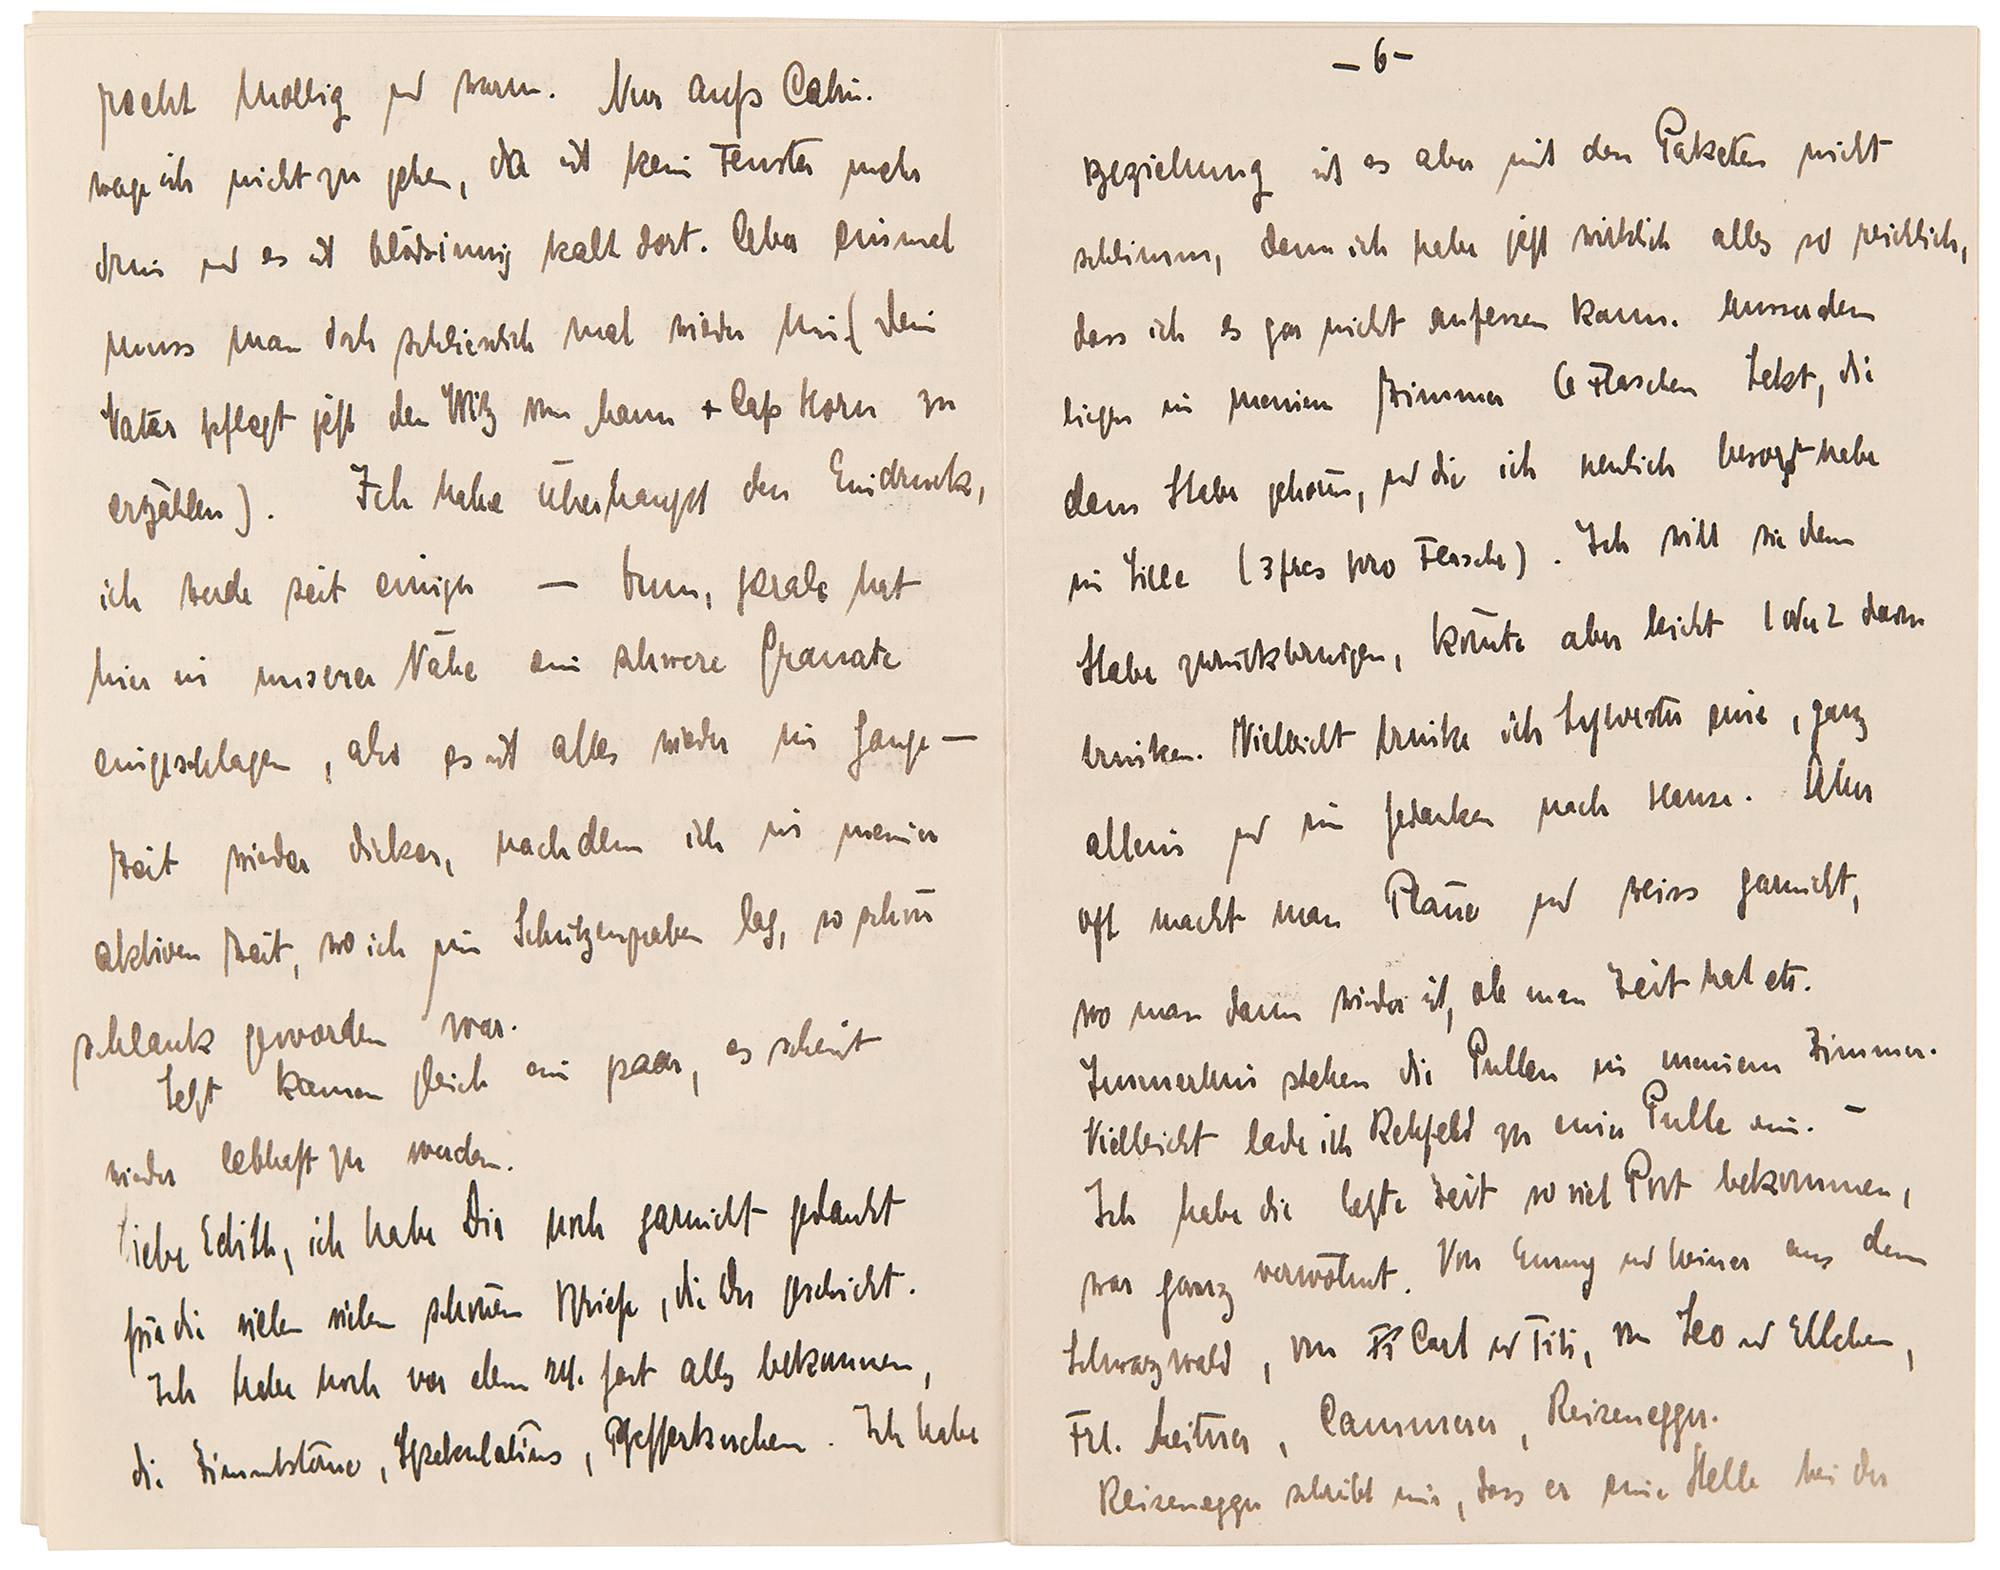 recht mollig und warm. Nur aufs Cabin.
wage ich nicht zu gehen, da ist kein Fenster mehr
drin und es ist blödsinnig kalt dort. Aber einmal
muss man doch schliesslich mal wieder hin (Dein
Vater pflegt jetzt den Witz von kann + Cap Horn zu
erzählen). Ich habe überhaupt den Eindruck,
ich werde seit einiger — brum, gerade hat
hier in unserer Nähe eine schwere Granate
eingeschlagen, also es ist alles wieder im Gange —
Zeit wieder dicker, nachdem ich in meiner
aktiven Zeit, wo ich im Schützengraben lag, so schön
schlank geworden war.
Jetzt kamen gleich ein paar, es scheint
wieder lebhaft zu werden.
Liebe Edith, ich habe Dir noch garnicht gedankt
für die vielen vielen schönen Briefe, die Du geschickt.
Ich habe noch vor dem 24. fast alles bekommen,
die Zimmtsterne, Spekulatius, Pfefferkuchen. Ich habe
– 6 –
Beziehung ist es aber mit den Paketen nicht
schlimm, denn ich habe jetzt wirklich alles so reichlich,
dass ich es gar nicht aufessen kann. Ausserdem
liegen in meinem Zimmer 6 Flaschen Sekt, die
dem Stabe gehören, und die ich neulich besorgt habe
in Lille (3 frcs pro Flasche). Ich will sie dem
Stabe zurückbringen, könnte aber leicht 1 oder 2 davon
trinken. Vielleicht trinke ich Sylvester eine, ganz
allein und in Gedanken nach Hause. Aber
oft macht man Pläne und weiss garnicht,
wo man dann wieder ist, ob man Zeit hat etc.
Immerhin stehen die Pullen in meinem Zimmer.
Vielleicht lade ich Rehfeld zu einer Pulle ein. —
Ich habe die letzte Zeit so viel Post bekommen,
war ganz verwöhnt. Von Emmy und Heiner aus dem
Schwarzwald, von Carl und Titi, von Leo und Ellchen,
Frl. Meitner, Cammerer, Reisenegger.
Reisenegger schreibt mir, dass er eine Stelle bei der